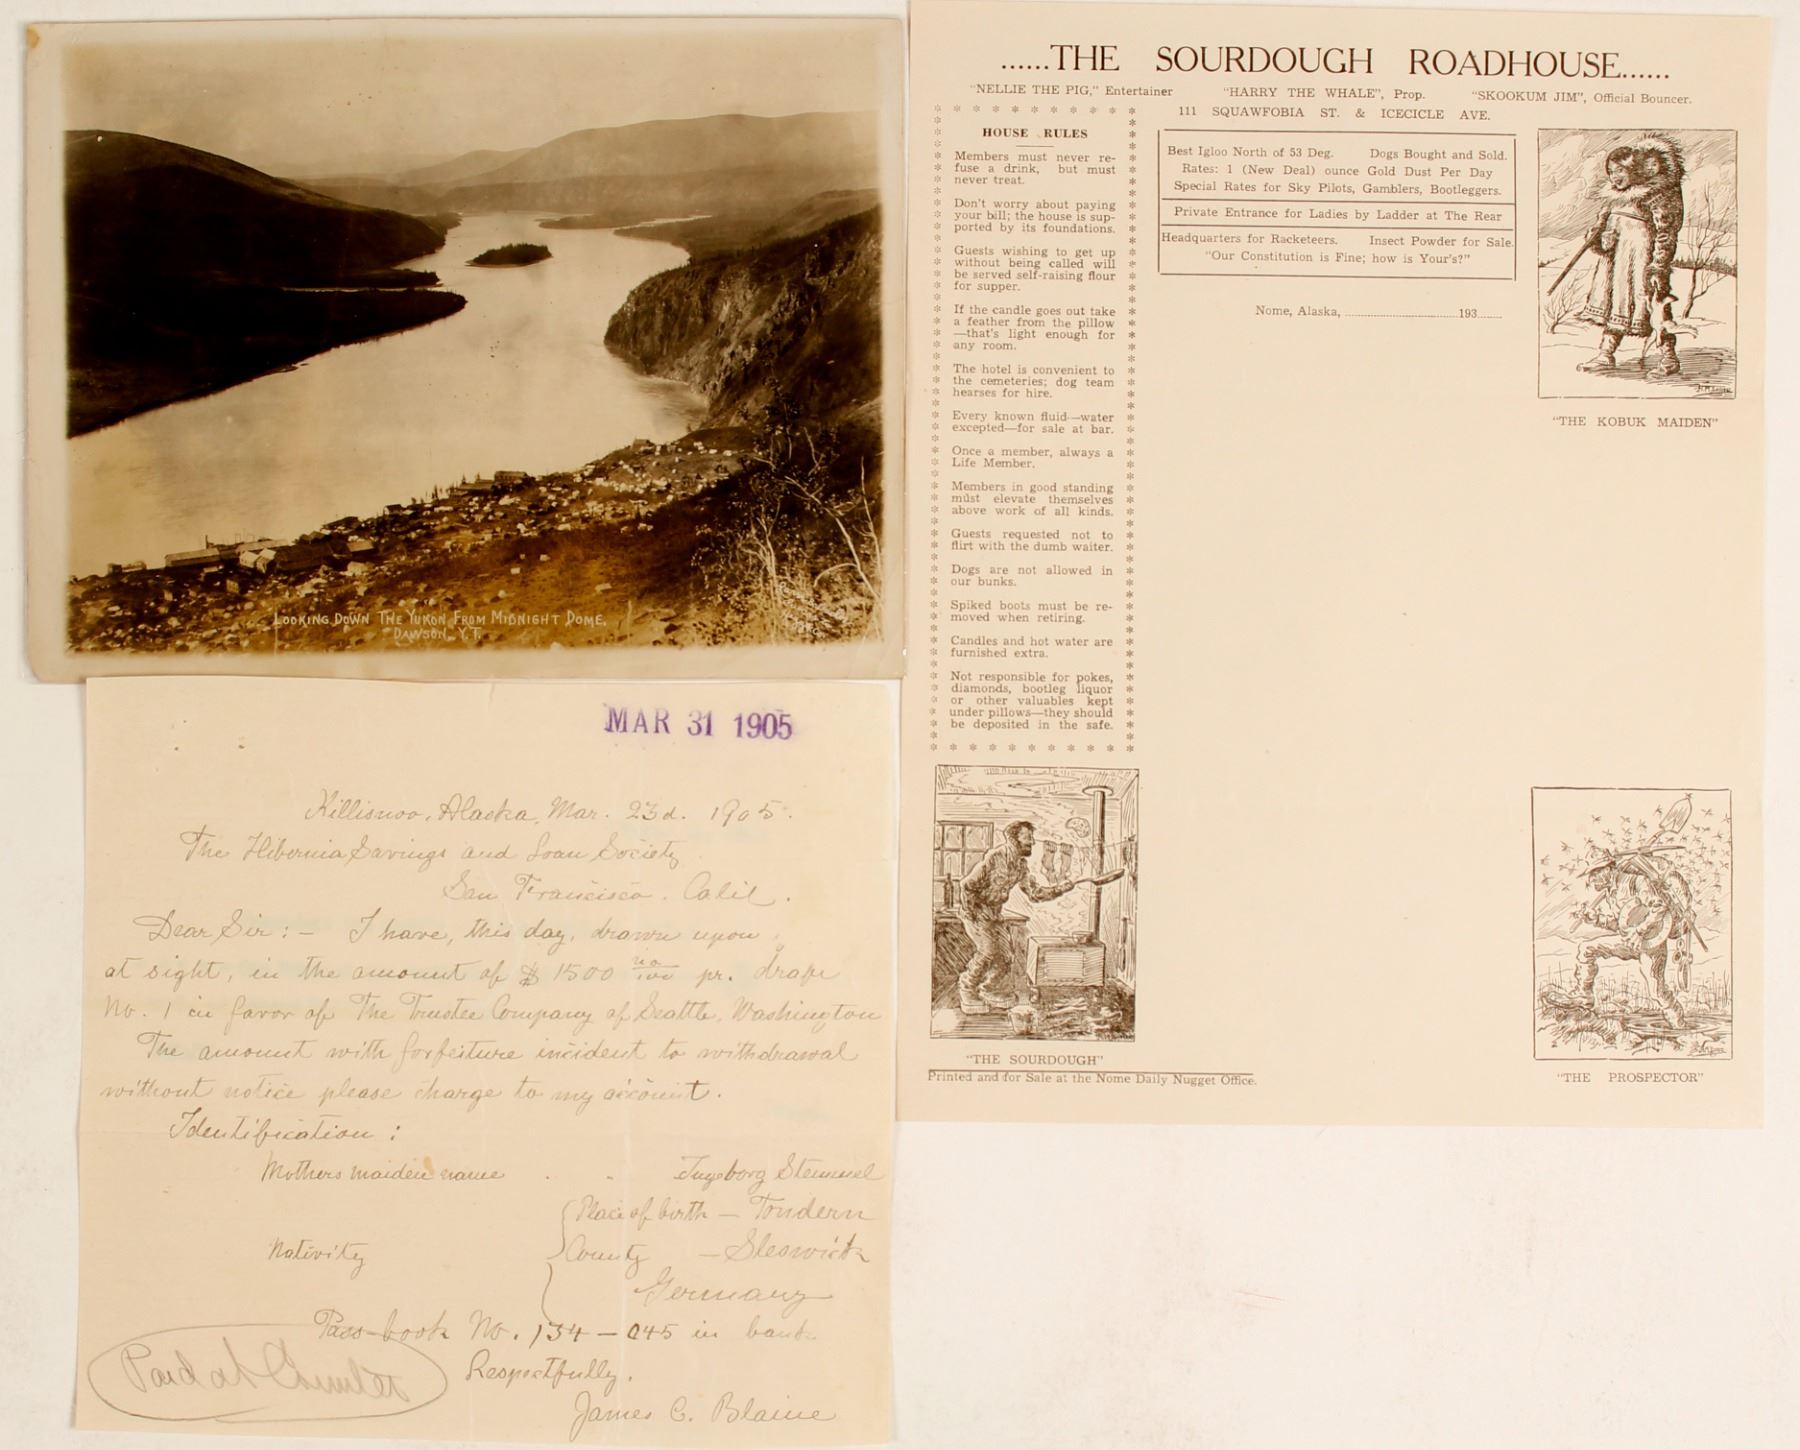 LOOKING DOWN THE YUKON FROM MIDNIGHT DOME.
DAWSON, Y.T.
......THE SOURDOUGH ROADHOUSE......
"NELLIE THE PIG," Entertainer "HARRY THE WHALE", Prop. "SKOOKUM JIM", Official Bouncer.
111 SQUAWFOBIA ST. & ICECICLE AVE.
HOUSE RULES
Members must never re-
fuse a drink, but must
never treat.
Don't worry about paying
your bill; the house is sup-
ported by its foundations.
Guests wishing to get up
without being called will
be served self-raising flour
for supper.
If the candle goes out take
a feather from the pillow
—that's light enough for
any room.
The hotel is convenient to
the cemeteries; dog team
hearses for hire.
Every known fluid—water
excepted—for sale at bar.
Once a member, always a
Life Member.
Members in good standing
must elevate themselves
above work of all kinds.
Guests requested not to
flirt with the dumb waiter.
Dogs are not allowed in
our bunks.
Spiked boots must be re-
moved when retiring.
Candles and hot water are
furnished extra.
Not responsible for pokes,
diamonds, bootleg liquor
or other valuables kept
under pillows—they should
be deposited in the safe.
Best Igloo North of 53 Deg. Dogs Bought and Sold.
Rates: 1 (New Deal) ounce Gold Dust Per Day
Special Rates for Sky Pilots, Gamblers, Bootleggers.
Private Entrance for Ladies by Ladder at The Rear
Headquarters for Racketeers. Insect Powder for Sale.
"Our Constitution is Fine; how is Your's?"
Nome, Alaska, ..............................193.......
"THE KOBUK MAIDEN"
"THE SOURDOUGH"
"THE PROSPECTOR"
Printed and for Sale at the Nome Daily Nugget Office.
MAR 31 1905
Killisnoo, Alaska, Mar. 23d. 1905.
The Hibernia Savings and Loan Society
San Francisco. Calif.
Dear Sir:- I have, this day, drawn upon
at sight, in the amount of $1500 no/100 pr. draft
No. 1 in favor of The Trustee Company of Seattle, Washington
The amount with forfeiture incident to withdrawal
without notice please charge to my account.
Identification:
Mothers maiden name . . Ingeborg Stemmel
Place of birth — Tondern
Nativity County — Sleswick
Germany
Pass-book No. 134-045 in bank
Respectfully.
James C. Blaine
Paid at